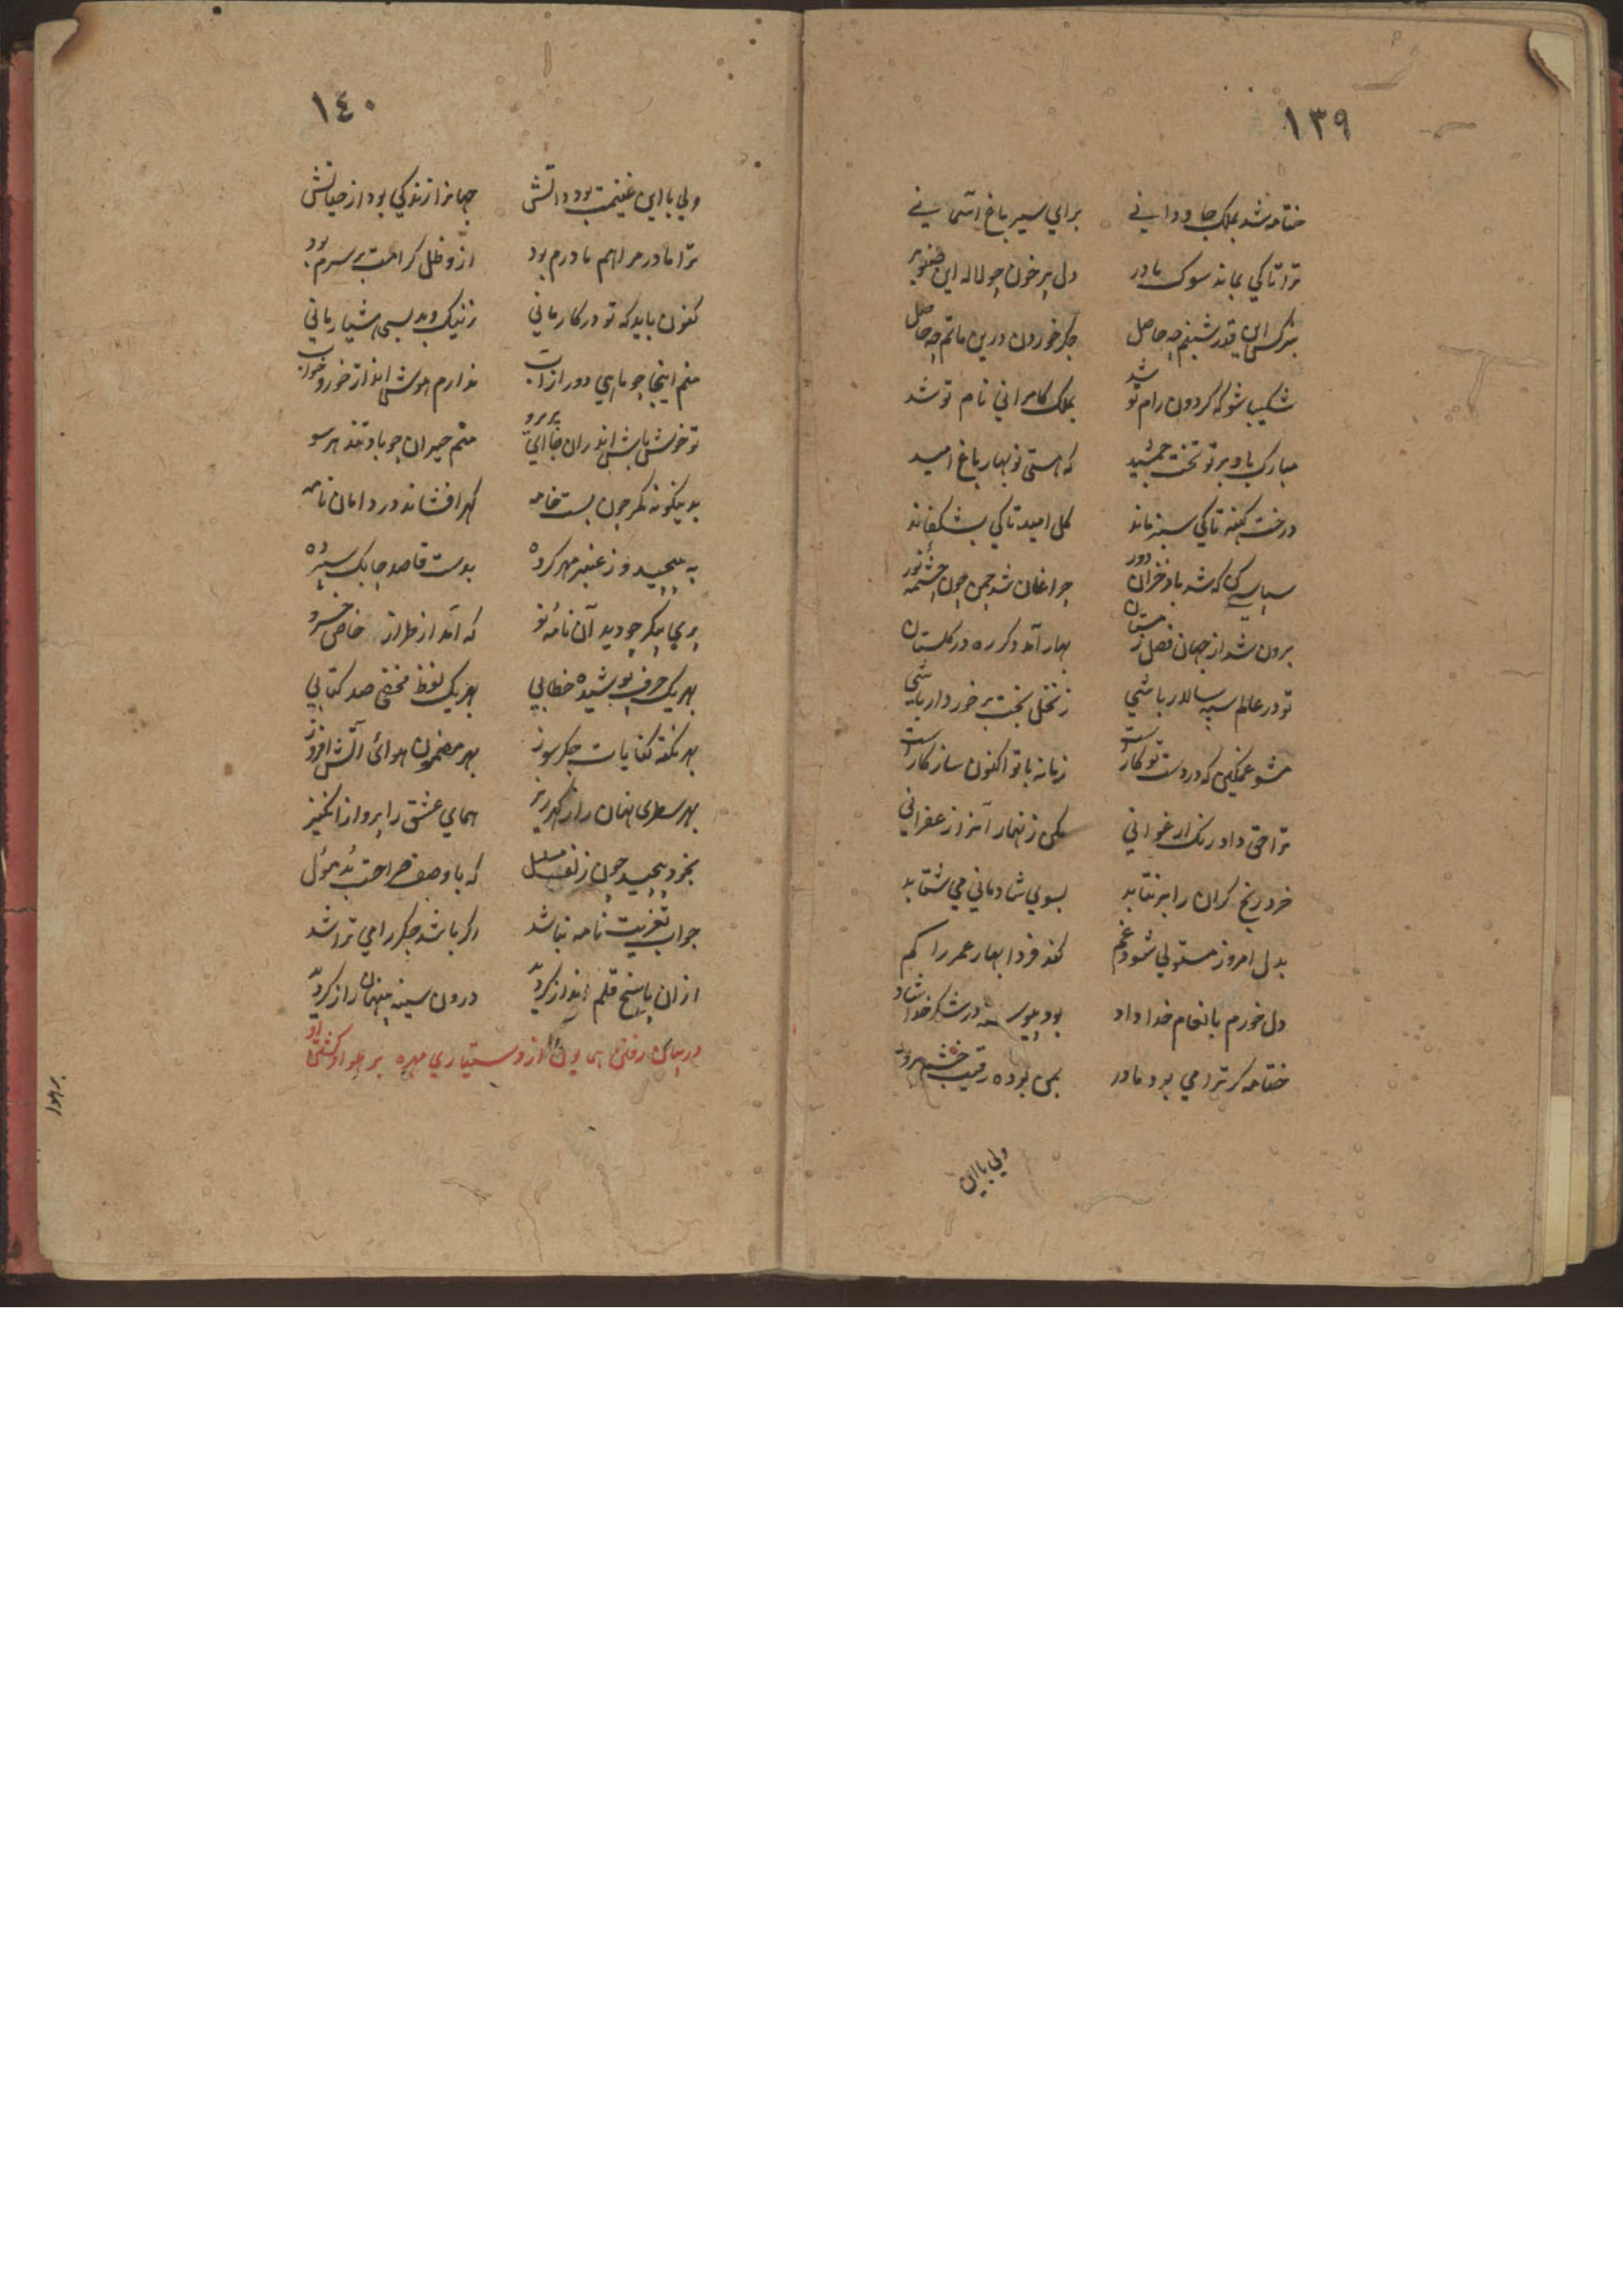 ١٣٩
ختامه شد بملک جاودانی برای سیر باغ آسمانی
ترا تاکی بماند سوک مادر دل پرخون چو لاله این صنوبر
بنرکس این قدر شبنم چه حاصل جکر خوردن درین ماتم چه حاصل
شکیبا شو که کردون رام تو شد بملک کامرانی نام تو شد
مبارک باد بر تو تخت جمشید که هستی نوبهار باغ امید
درخت کهنه تاکی سبز ماند کل امید تاکی بشکفاند
سپاسی کن که شد باد خزان دور چراغان شد چمن چون چشمه نور
برون شد از جهان فصل زمستان بهار آمد دکر ره در کلستان
تو در عالم سپه سالار باشی ز نخل بخت برخوردار باشی
مشو غمکین که در دست تو کارست زمانه با تو اکنون سازکارست
ترا حق داد رنک ارغوانی مکن زنهار آنرا زعفرانی
خرد رنج کران را برنتابد بسوی شادمانی می شتابد
بدل امروز مستولی شود غم کند فردا بهار عمر را کم
دل خورم بانعام خداداد بود پیوسته در شکر خدا شاد
ختامه کر ترا می بود مادر بمن بوده رقیب
ولی بااین
١٤٠
ولی بااین غنیمت بود ذاتش جهانرا زندکی بود از حیاتش
ترا مادر مرا هم مادرم بود ازو ظل کرامت بر سرم بود
کنون باید که تو در کار مانی ز نیک و بد بسی هشیار مانی
منم اینجا چو ماهی دور از آب ندارم هوش اندر خور و خواب
تو خوش باش اندران جا ای پریرو منم حیران چو باد تند هر سو
بدینکونه مکر چون بست خامه کهر افشاند در دامان نامه
به پیچید و ز عنبر مهر کرده بدست قاصد چابک سپرده
پری پیکر چو دید آن نامه نو که آمد از طراز خاص خسرو
بهر یک حرف پوشیده خطابی بهر یک لفظ مخفی صد کتابی
بهر نکته کنایات جکرسوز بهر مضمون هوائ آتش افروز
بهر سطری نهان راز کهرریز همای عشق را پرواز انکیز
بخود پیچید چون زلف مسلسل که با وصف صراحت بد مؤل
جواب تعزیت نامه نباشد اکر باشد جکر را می تراشد
ازان پاسخ قلم انداز کرد درون سینه پنهان راز کرد
در بیان رفتن همایون از دستیاری مهره بر هوا و کشتی او
برهوا